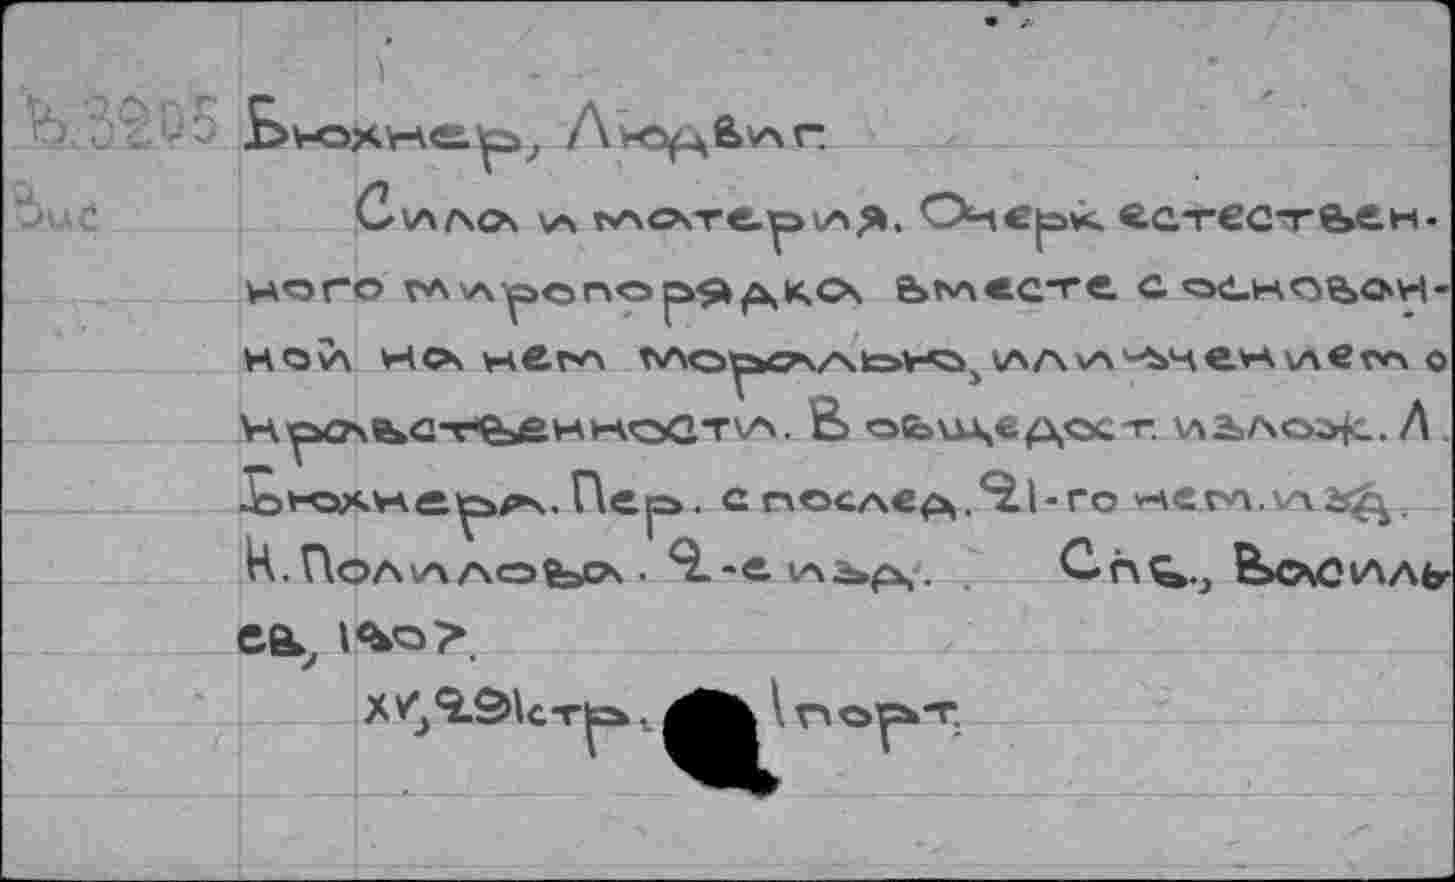 В.3205 Бюхнер, Людвиг.
Сила и материя. Очерк естествен-
ного миропорядка вместе с основан-
ной на нем моралью, или учением о
нравственности. В общедост. излож. Л.
Бюхнера. Пер. с послед. 21-го нем. изд.
Н. Полилова. 2-е изд. Спб., Василь-
ев, 1907.
XV, 291 стр. 1 порт.